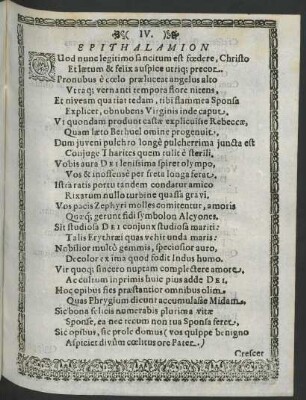 IV.
EPITHALAMION
QUod nunc legitimo sancitum est fœdere, Christo
Et lætum & felix auspice utriq; precor.
Pronubus è cœlo præluceat angelus alto
Utraq; vernanti tempora flore nitens,
Et niveam quatiat tedam, tibi flammea Sponsa
Explicet, obnubens Virginis inde caput.
Vi quondam produnt castæ explicuisse Rebeccæ,
Quam læto Bethuel omine progenuit.
Dum juveni pulchro longè pulcherrima juncta est
Conjuge Tharites quem tulit è sterili.
Vobis aura DEI lenissima spiret olympo,
Vos & inoffensè per freta longa ferat.
Istra ratis portu tandem condatur amico
Rixarum nullo turbine quassa gravi.
Vos pacis Zephyri molles comitentur, amoris
Quæq; gerunt fidi symbolon Alcyones.
Sit studiosa DEI conjunx studiosa mariti:
Talis Erythræi quas vehit unda maris.
Nobilior multò gemmis, speciosior auro,
Decolor ex ima quod fodit Indus humo.
Vir quoq; sincero nuptam complectere amore,
Ac cultum in primis huic pius adde DEI,
Hoc opibus fies præstantior omnibus olim,
Quas Phrygium dicunt accumulasse Midam.
Sic bona felicis numerabis plurima vitæ
Sponse, ea nec tecum non tua Sponsa feret.
Sic opibus, sic prole domus (vos quippe benigno
Aspiciet divûm cœlitus ore Pater.)
Crescet